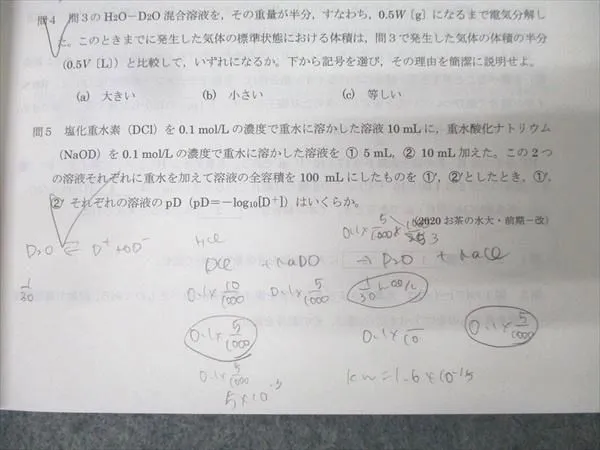 問4 問3のH2O－D2O混合溶液を，その重量が半分，すなわち，0.5W〔g〕になるまで電気分解し
た。このときまでに発生した気体の標準状態における体積は，問3で発生した気体の体積の半分
（0.5V〔L〕）と比較して，いずれになるか。下から記号を選び，その理由を簡潔に説明せよ。
(a) 大きい (b) 小さい (c) 等しい
問5 塩化重水素（DCl）を0.1 mol/Lの濃度で重水に溶かした溶液10 mLに，重水酸化ナトリウム
（NaOD）を0.1 mol/Lの濃度で重水に溶かした溶液を ① 5 mL，② 10 mL加えた。この2つ
の溶液それぞれに重水を加えて溶液の全容積を100 mLにしたものを ①′，②′としたとき，①′，
②′ それぞれの溶液のpD（pD＝－log10[D+]）はいくらか。
（2020 お茶の水大・前期－改）
D2O ⇄ D+ + OD-
HCl
DCl + NaDO → D2O + NaCl
1/30
0.1× 10/1000 0.1× 5/1000
0.1× 5/1000 0.1× 5/1000
0.1× 5/1000
5×10-5
Kw=1.6×10-15